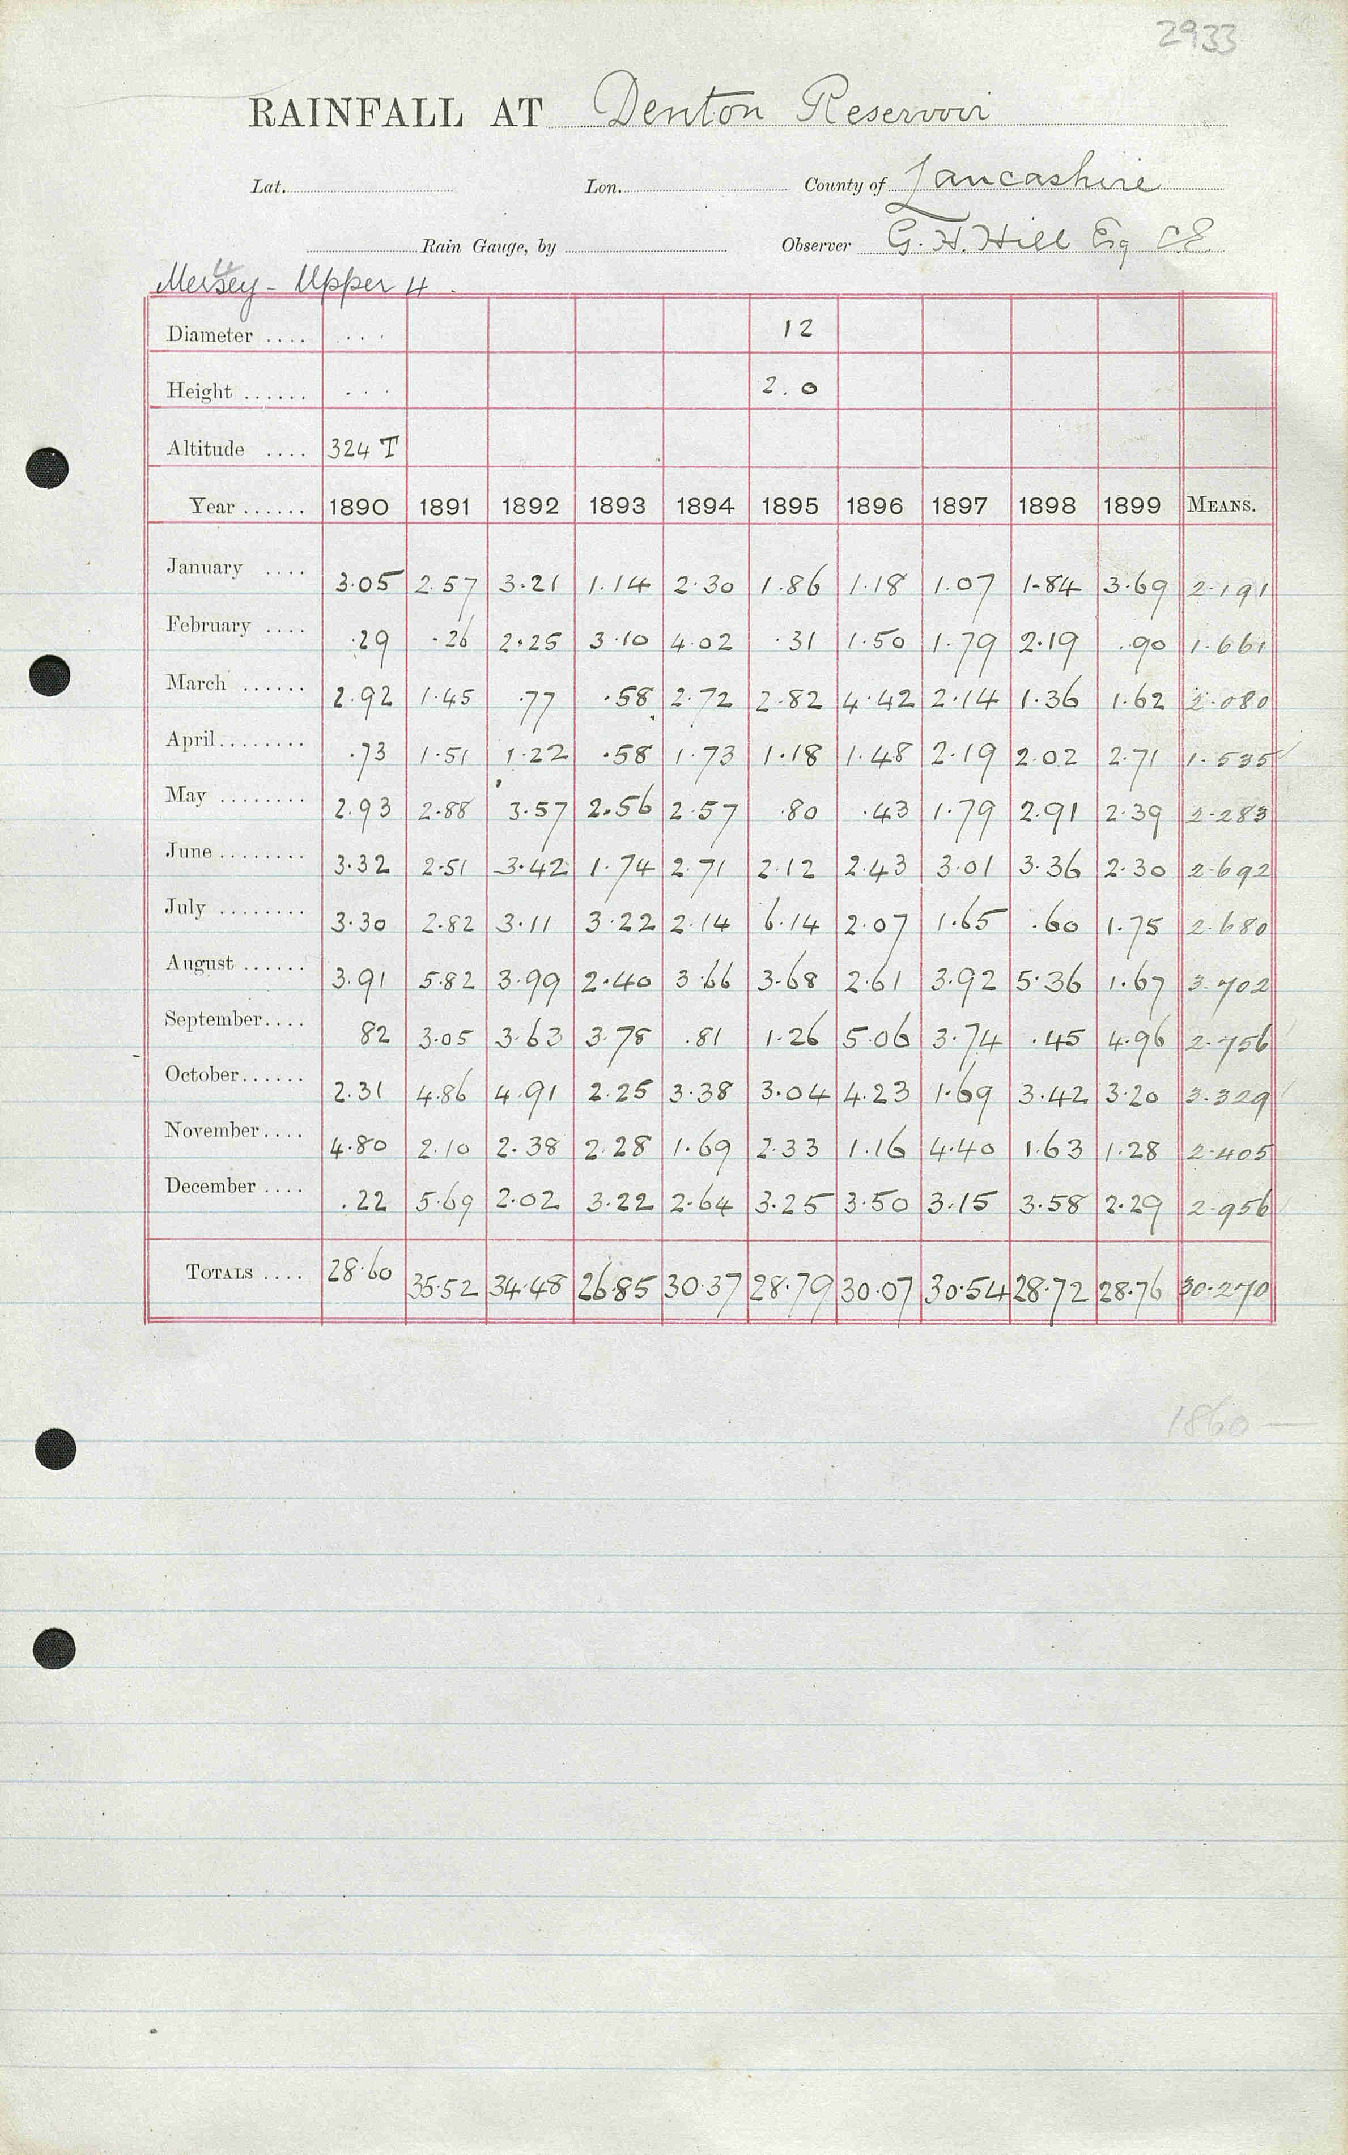 2933
RAINFALL AT Denton Reservoir
Lat. Lon. County of Lancashire
Rain Gauge, by Observer G. H. Hill Esq CE
Mersey - Upper 4
Diameter .... ... 12
Height ...... ... 2.0
Altitude .... 324 T
Year ...... 1890 1891 1892 1893 1894 1895 1896 1897 1898 1899 MEANS.
January .... 3.05 2.57 3.21 1.14 2.30 1.86 1.18 1.07 1.84 3.69 2.191
February .... .29 .26 2.25 3.10 4.02 .31 1.50 1.79 2.19 .90 1.661
March ...... 2.92 1.45 .77 .58 2.72 2.82 4.42 2.14 1.36 1.62 2.080
April........ .73 1.51 1.22 .58 1.73 1.18 1.48 2.19 2.02 2.71 1.535
May ........ 2.93 2.88 3.57 2.56 2.57 .80 .43 1.79 2.91 2.39 2.283
June ........ 3.32 2.51 3.42 1.74 2.71 2.12 2.43 3.01 3.36 2.30 2.692
July ........ 3.30 2.82 3.11 3.22 2.14 6.14 2.07 1.65 .60 1.75 2.680
August ...... 3.91 5.82 3.99 2.40 3.66 3.68 2.61 3.92 5.36 1.67 3.702
September.... 82 3.05 3.63 3.78 .81 1.26 5.06 3.74 .45 4.96 2.756
October...... 2.31 4.86 4.91 2.25 3.38 3.04 4.23 1.69 3.42 3.20 3.329
November.... 4.80 2.10 2.38 2.28 1.69 2.33 1.16 4.40 1.63 1.28 2.405
December .... .22 5.69 2.02 3.22 2.64 3.25 3.50 3.15 3.58 2.29 2.956
TOTALS .... 28.60 35.52 34.48 26.85 30.37 28.79 30.07 30.54 28.72 28.76 30.270
1860 —